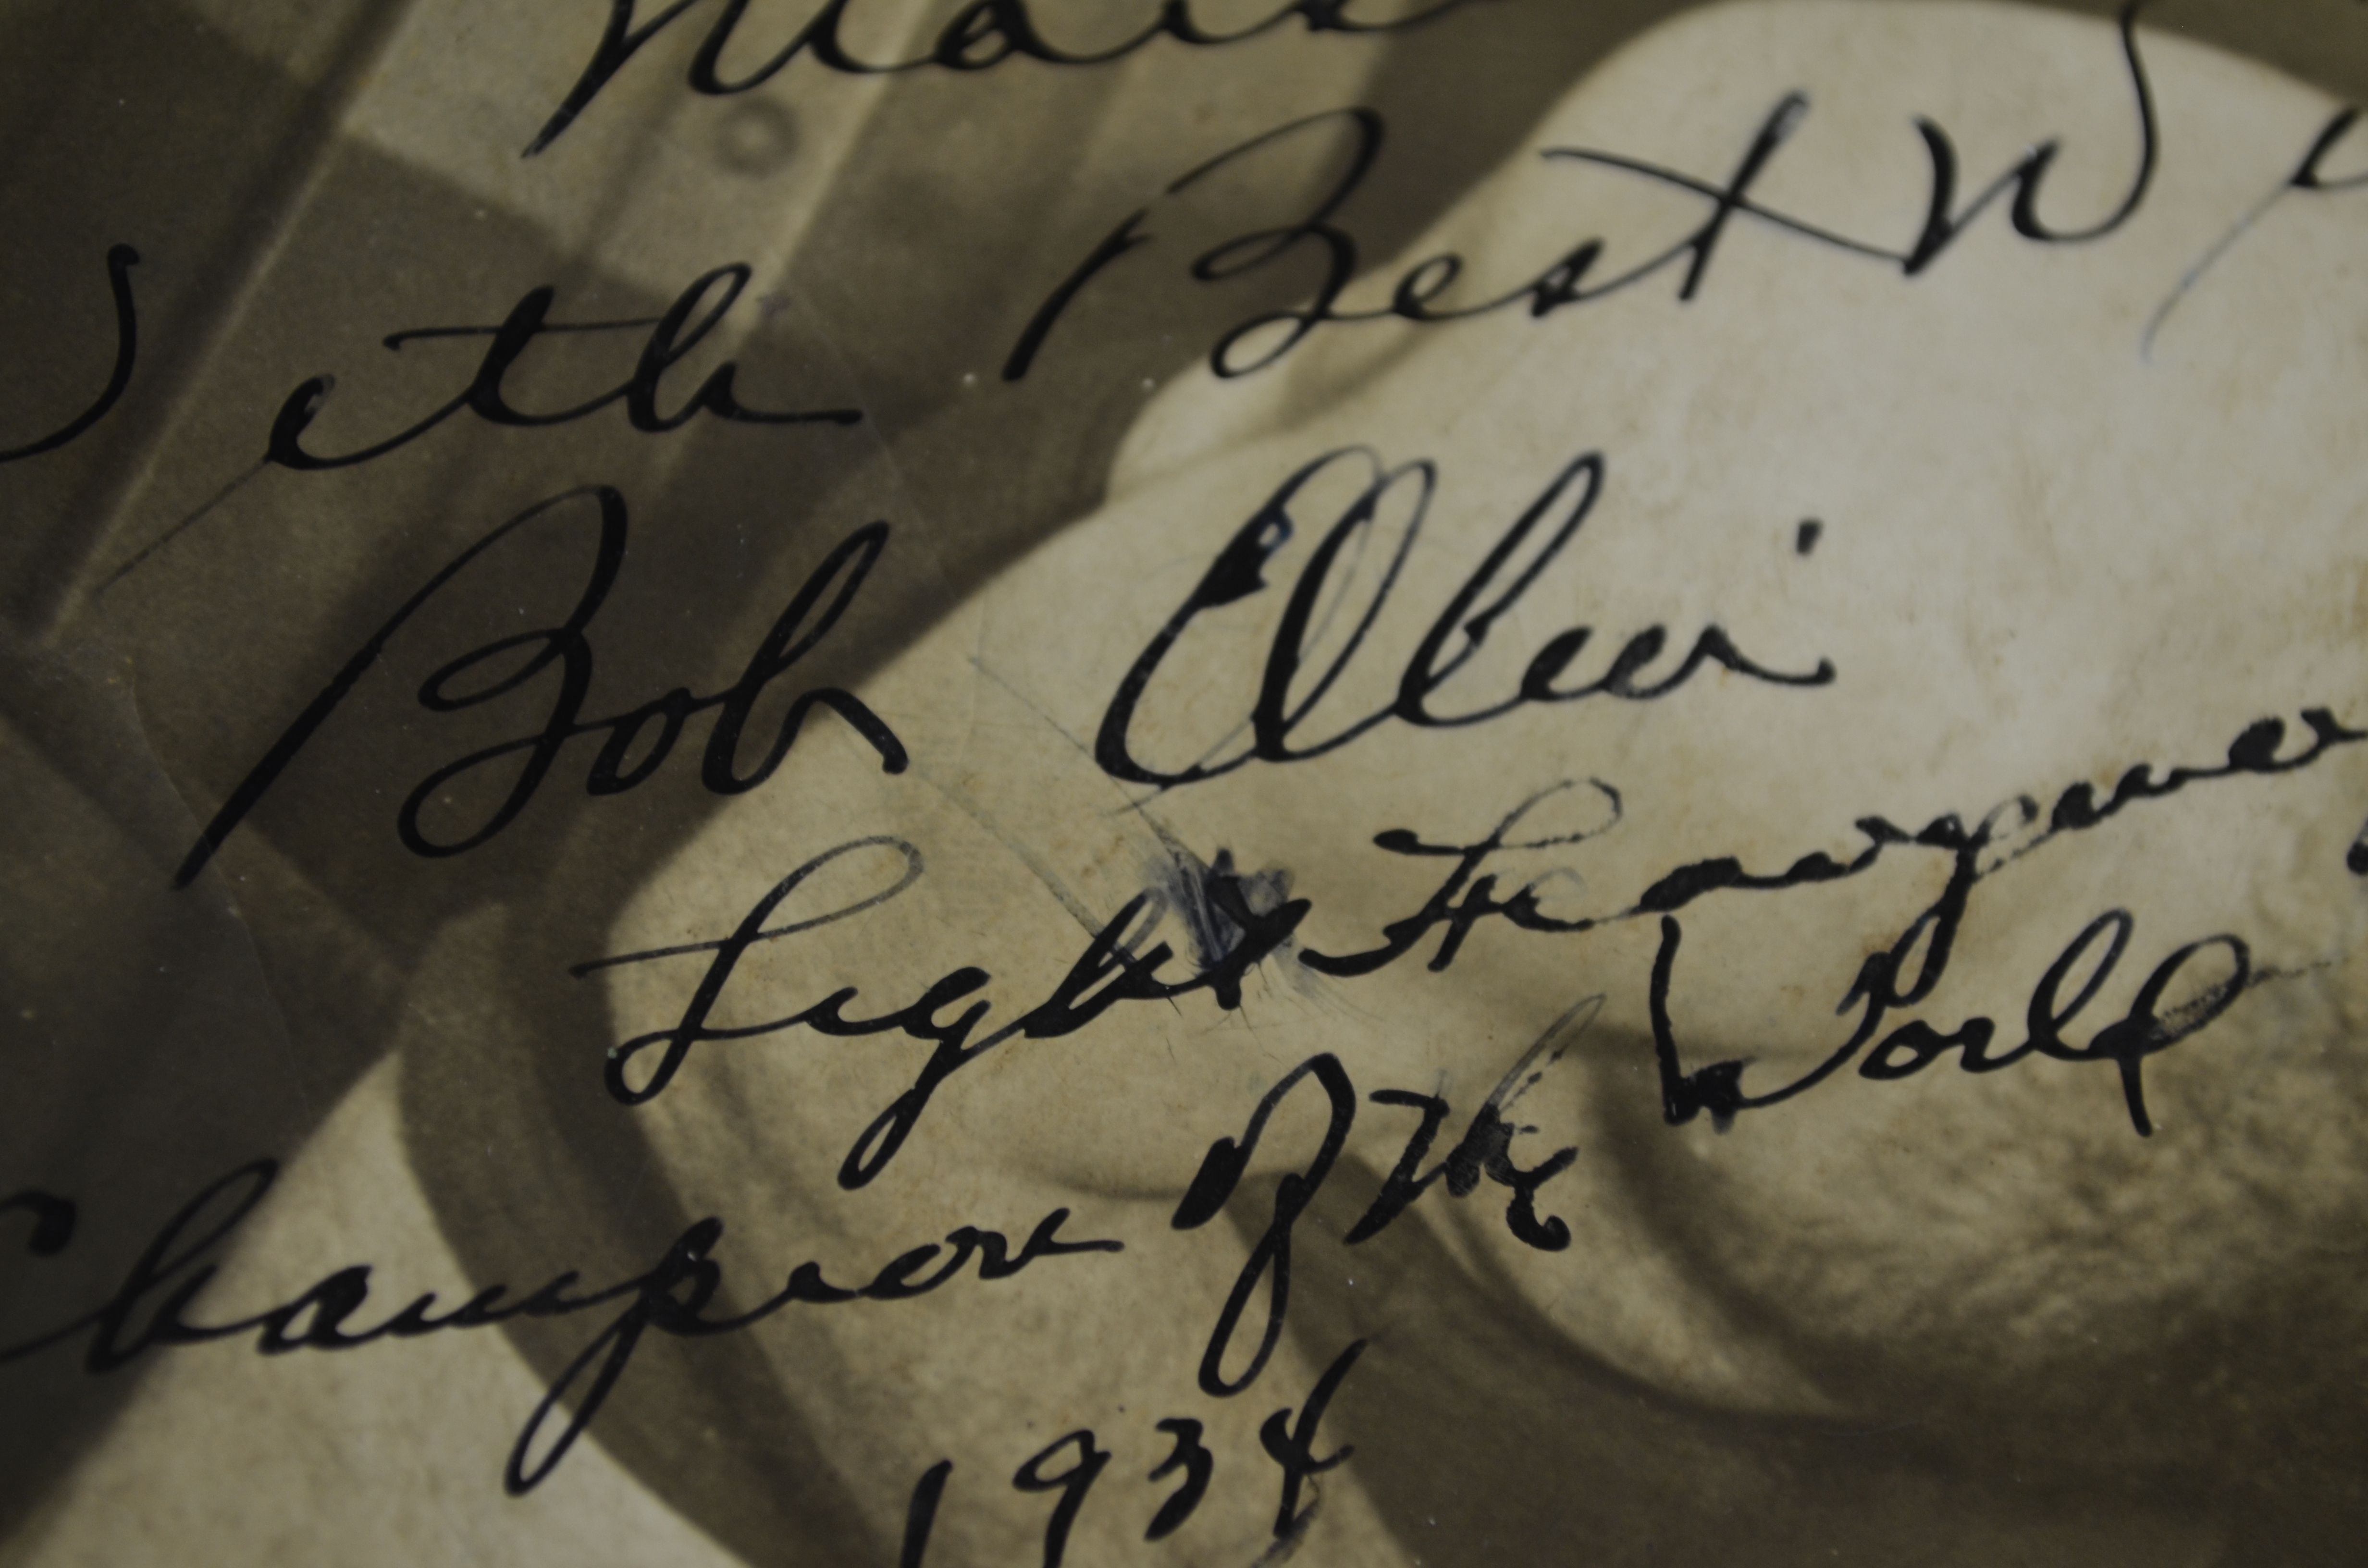 With Best
Bob Olin
Light Heavywe
Champion Of The World
1934